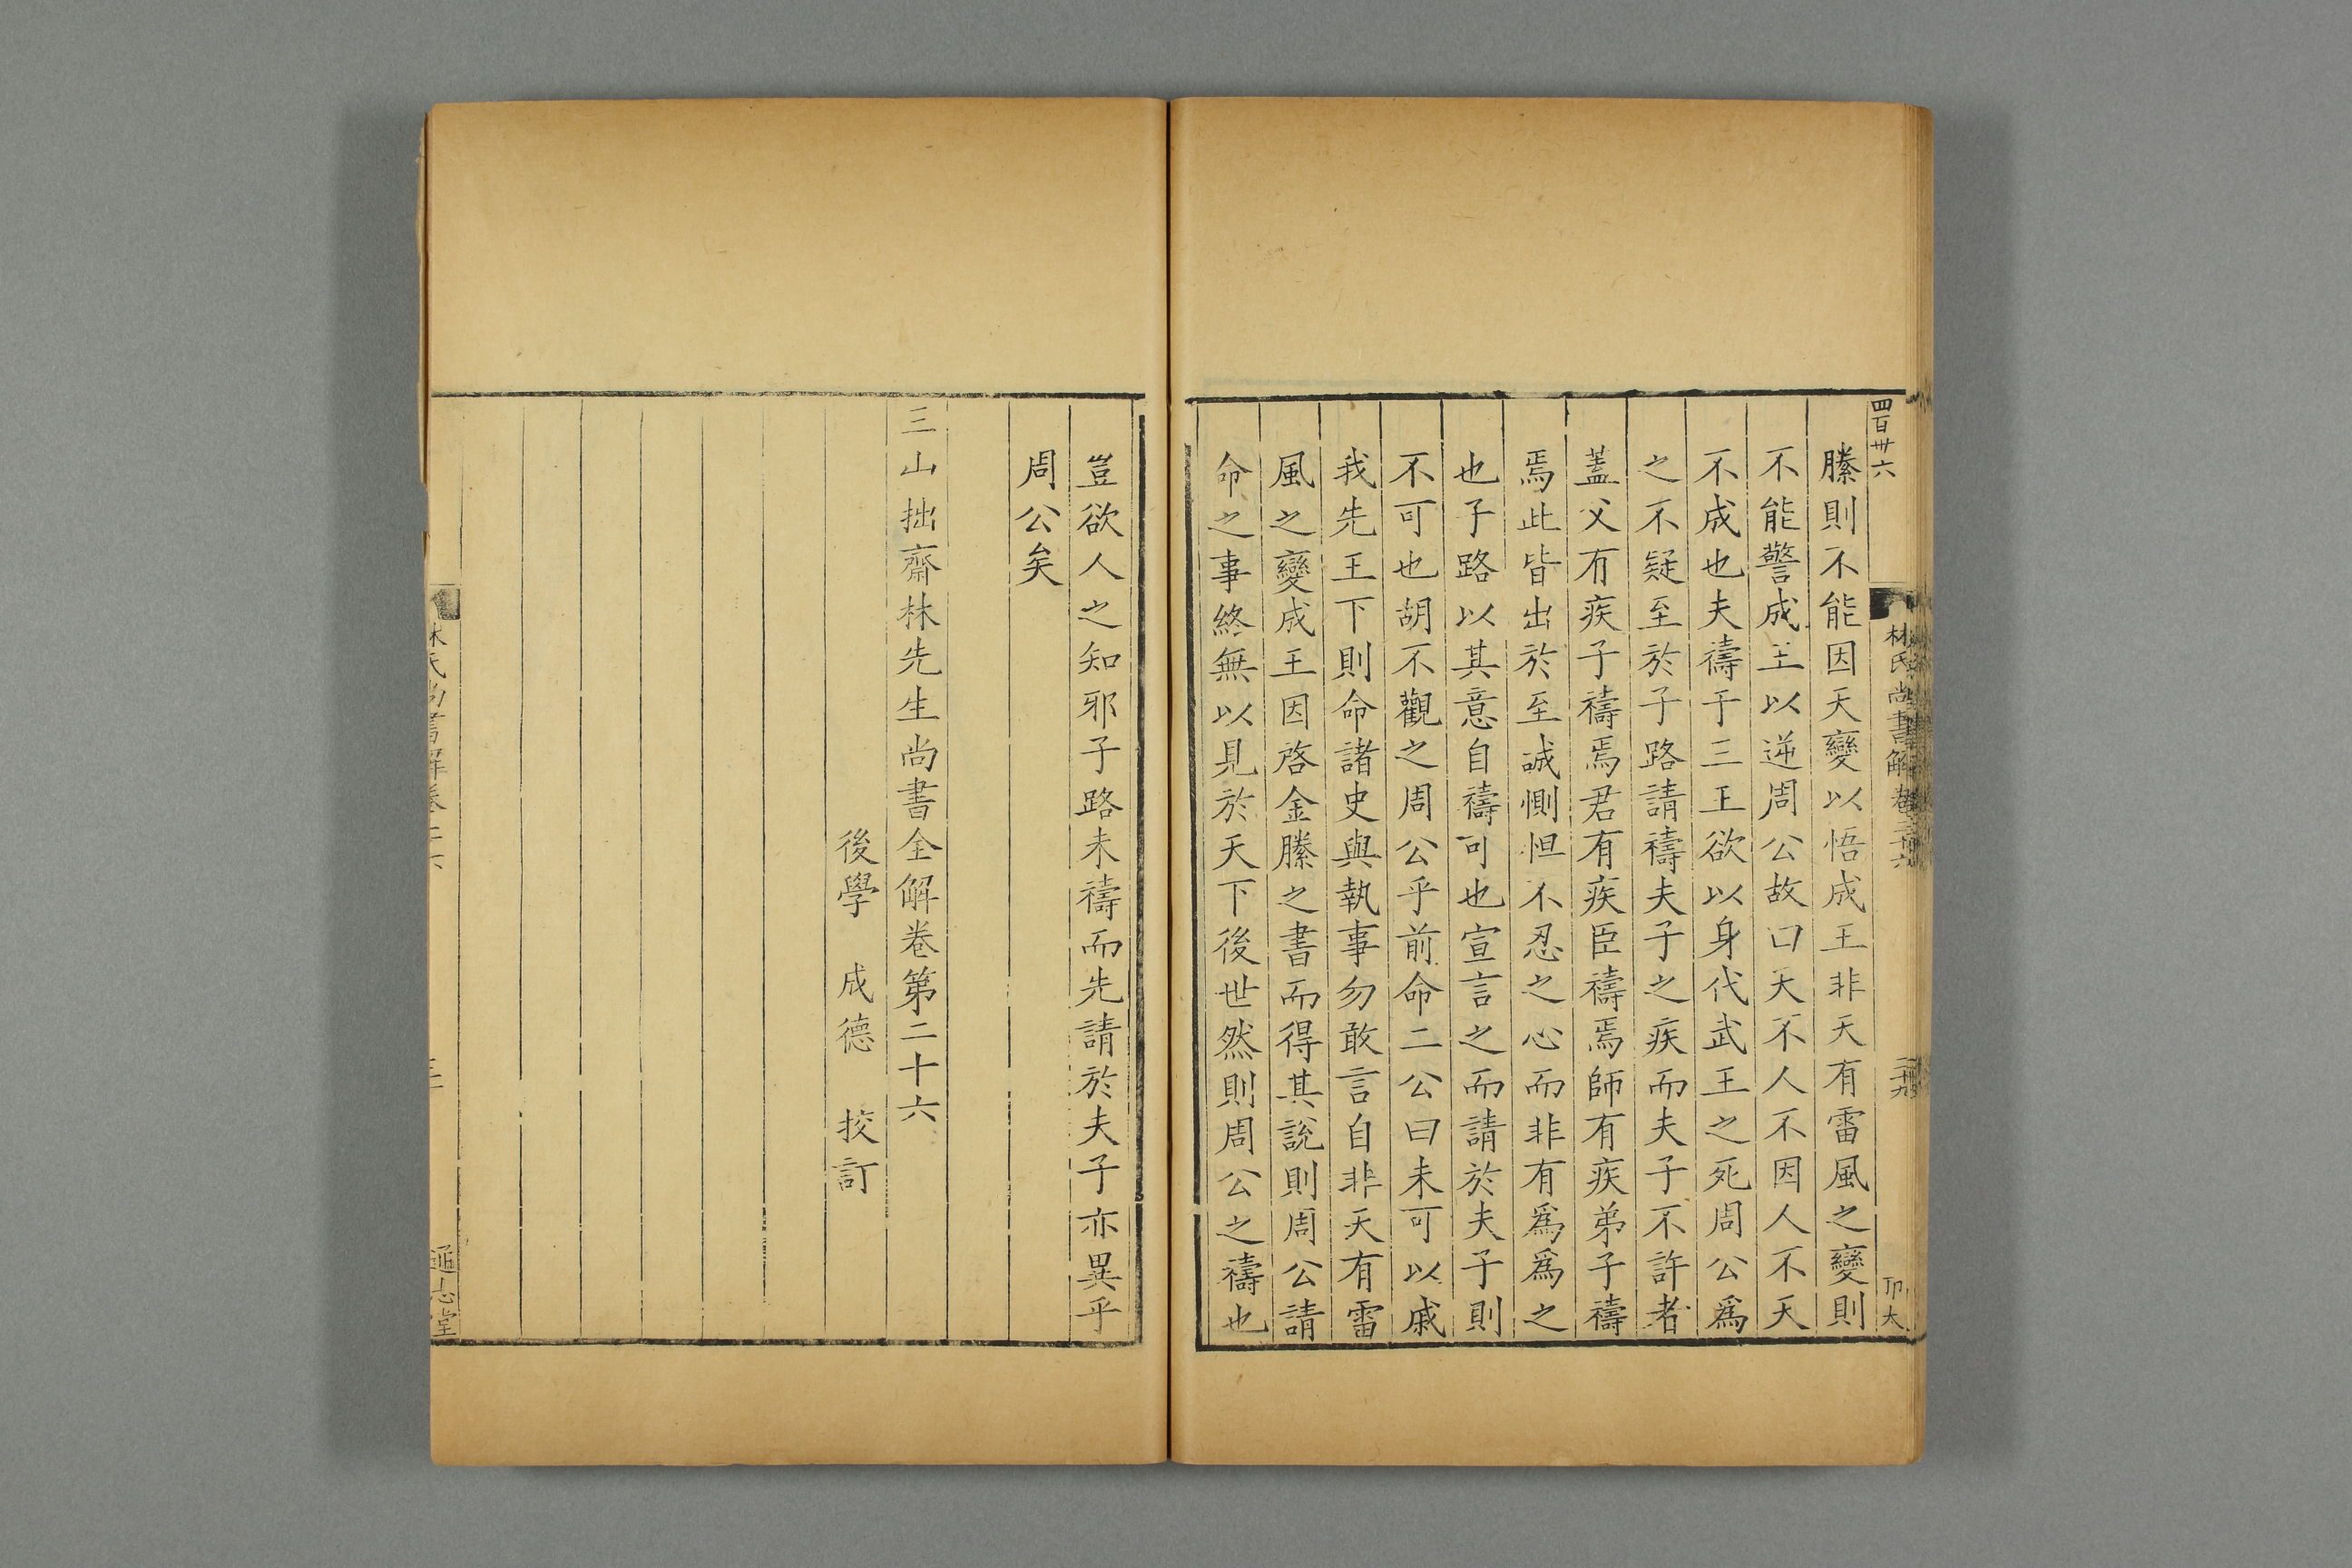 四百卅六
林氏尚書解卷二十六
二十九
縢則不能因天變以悟成王非天有雷風之變則
不能警成王以逆周公故曰天不人不因人不天
不成也夫禱于三王欲以身代武王之死周公爲
之不疑至於子路請禱夫子之疾而夫子不許者
蓋父有疾子禱焉君有疾臣禱焉師有疾弟子禱
焉此皆出於至誠惻怛不忍之心而非有爲爲之
也子路以其意自禱可也宣言之而請於夫子則
不可也胡不觀之周公乎前命二公曰未可以戚
我先王下則命諸史與執事勿敢言自非天有雷
風之變成王因啓金縢之書而得其說則周公請
命之事終無以見於天下後世然則周公之禱也
豈欲人之知邪子路未禱而先請於夫子亦異乎
周公矣
三山拙齋林先生尚書全解卷第二十六
後學 成德 挍訂
林氏尚書解卷二十六
通志堂